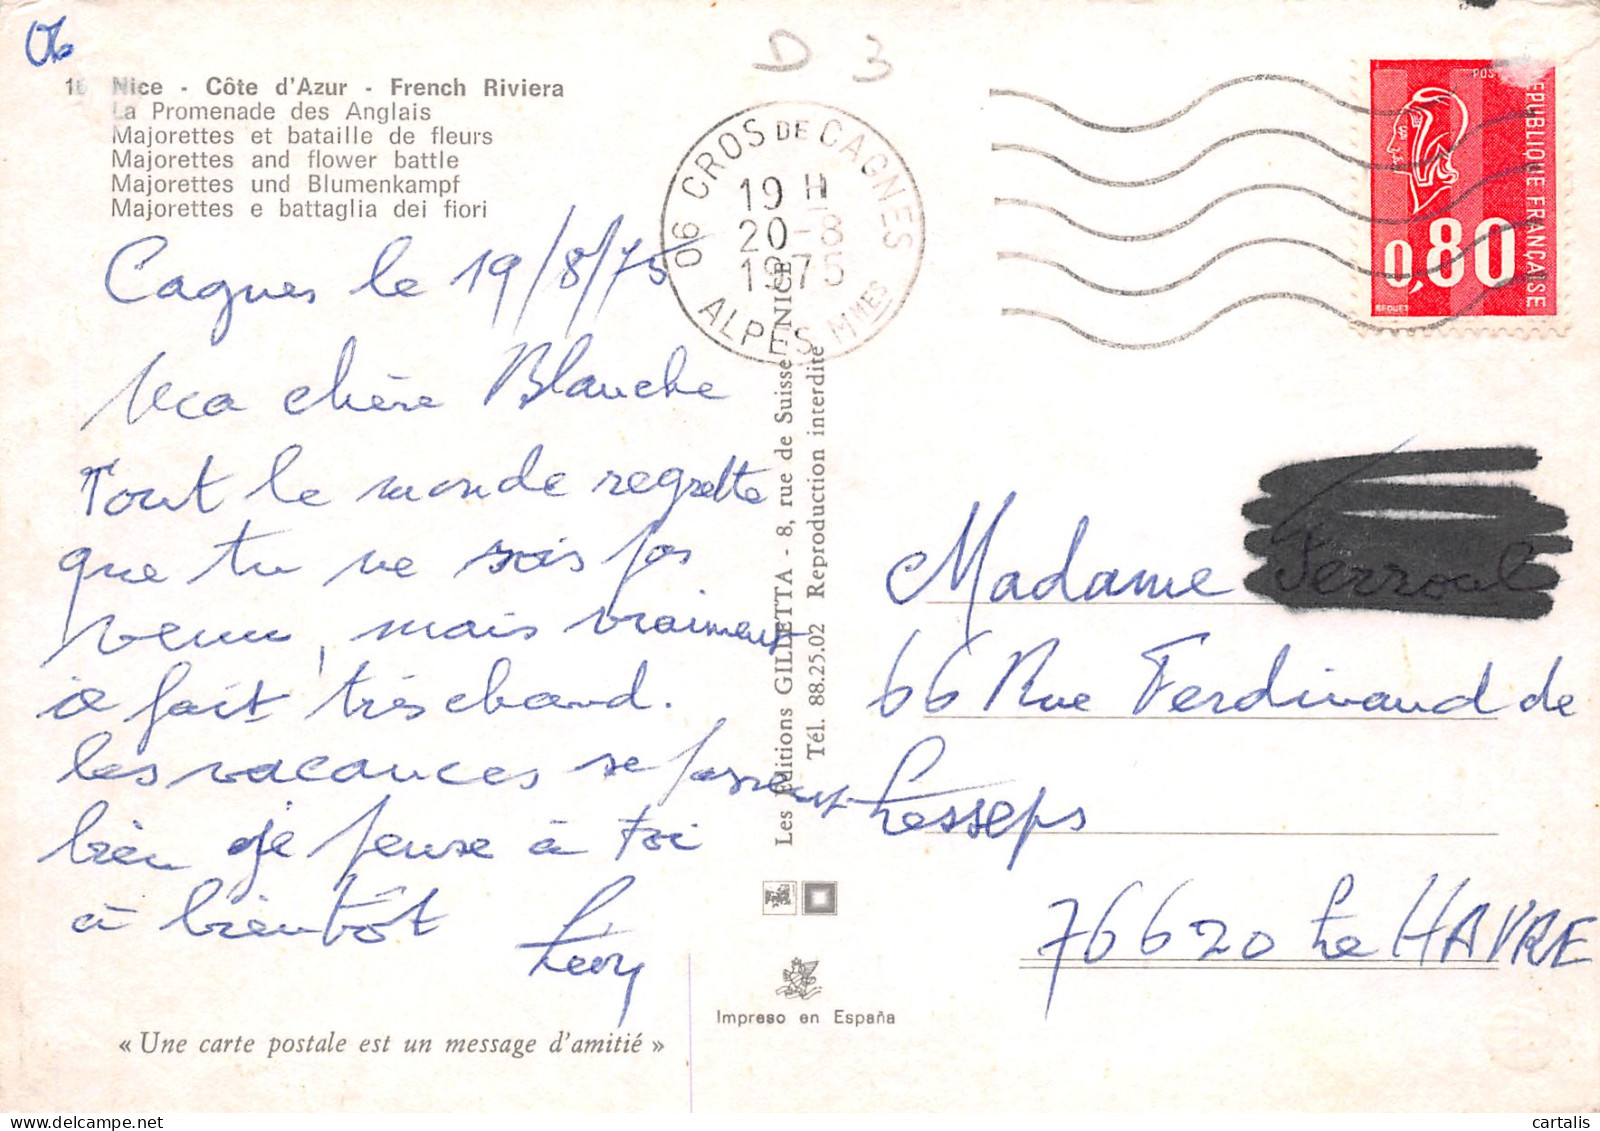 06
D 3
16 Nice - Côte d'Azur - French Riviera
La Promenade des Anglais
Majorettes et bataille de fleurs
Majorettes and flower battle
Majorettes und Blumenkampf
Majorettes e battaglia dei fiori
Cagnes le 19/8/75
Ma chère Blanche
Tout le monde regrette
que tu ne sois pas
venu, mais vraiment
il fait très chaud.
Les vacances se passent
bien je pense à toi
à bientôt
06 CROS DE CAGNES
19 H
20-8
1975
ALPES MMES
Les Éditions GILLETTA - 8, rue de Suisse - NICE
Tél. 88.25.02 Reproduction interdite
POSTES
REPUBLIQUE FRANÇAISE
0,80
BEQUET
Madame
66 Rue Ferdinand de
Lesseps
76620 Le HAVRE
Impreso en España
« Une carte postale est un message d'amitié »
cartalis